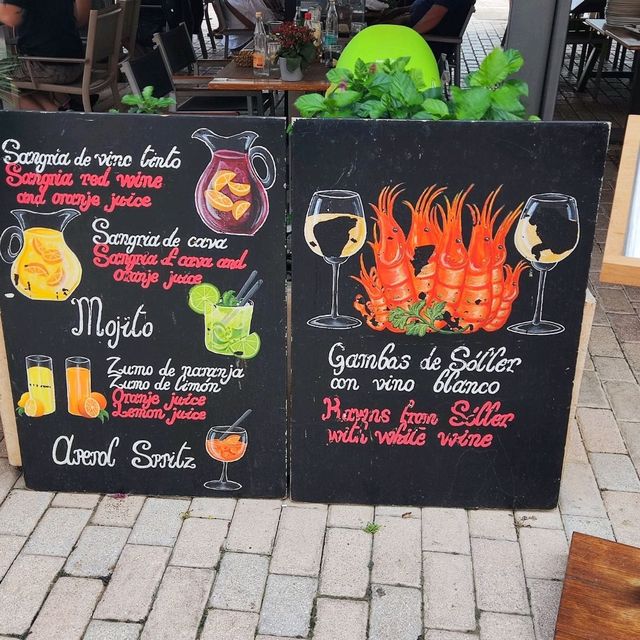 Sangria de vino tinto
Sangria red wine
and oranje juice
Sangria de cava
Sangria of cava and
oranje juice
Mojito
Zumo de naranja
Zumo de limón
Oranje juice
Lemon juice
Aperol Spritz
Gambas de Sóller
con vino blanco
from Sóller
with white wine